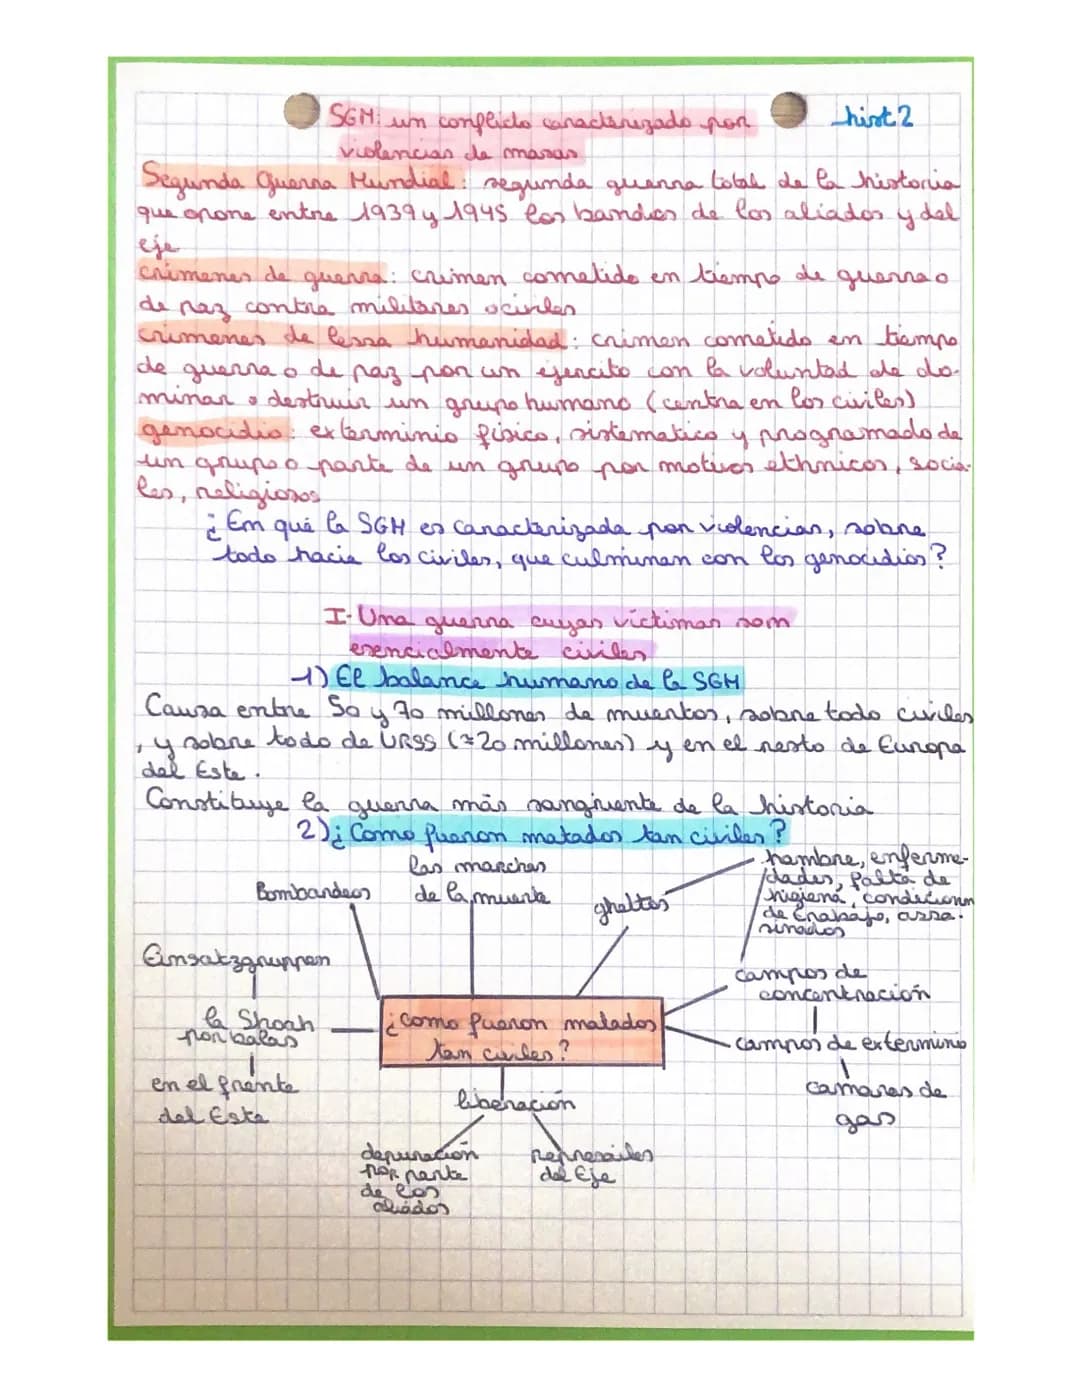 SGM: un conflicto caracterizado por
violencias de masas
hist 2
Segunda Guerra Mundial: segunda guerra total de la historia
que opone entre 1939 y 1945 los bandos de los aliados y del
eje
crimenes de guerra: crimen cometido en tiempo de guerra o
de paz contra militares o civiles
crimenes de lessa humanidad: crimen cometido en tiempo
de guerra o de paz por un ejercito con la voluntad de do-
minar o destruir un grupo humano (centra en los civiles)
genocidio: exterminio físico, sistematico y programado de
un grupo o parte de un grupo por motivos ethnicos, socia-
les, religiosos
¿En qué la SGM es caracterizada por violencias, sobre
todo hacia los civiles, que culminan con los genocidios?
I- Una guerra cuyas víctimas son
esencialmente civiles
1) El balance humano de la SGM
Causa entre 50 y 70 millones de muertos, sobre todo civiles
, y sobre todo de URSS (≈20 millones) y en el resto de Europa
del Este.
Constituye la guerra más sangriente de la historia
2) ¿Como fueron matados tan civiles?
las marchas
de la muerte
Bombardeos
ghettos
hambre, enferme-
dades, falta de
higiena, condiciones
de trabajo, assa-
sinados
Einsatzgruppen
la Shoah
por balas
en el frente
del Este
¿como fueron matados
tan civiles?
campos de
concentración
campos de exterminio
camaras de
gas
liberación
depuración
por parte
de los
aliados
represailes
del Eje